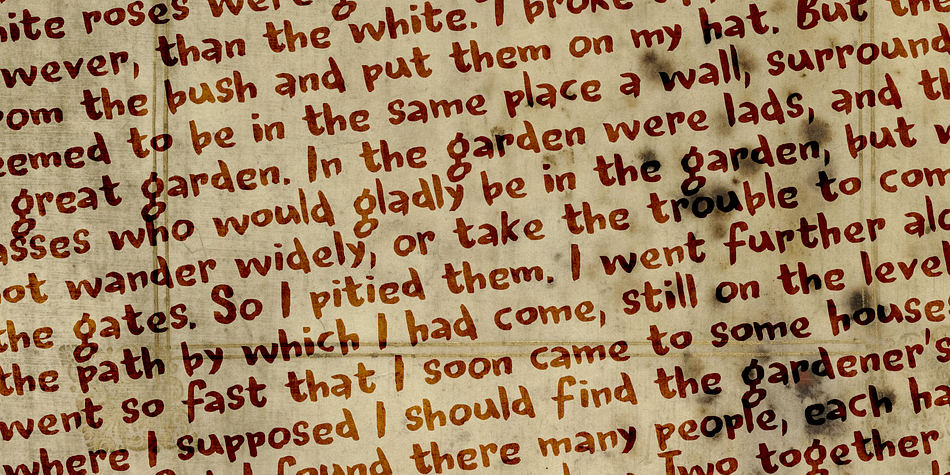 roses were
wever, than the white. I broke
rom the bush and put them on my hat. But the
eemed to be in the same place a wall, surround
great garden. In the garden were lads, and
asses who would gladly be in the garden, but
ot wander widely, or take the trouble to com
the gates. So I pitied them. I went further al
the path by which I had come, still on the level
went so fast that I soon came to some house
where I supposed I should find the gardener's
found there many people, each ha
Two together